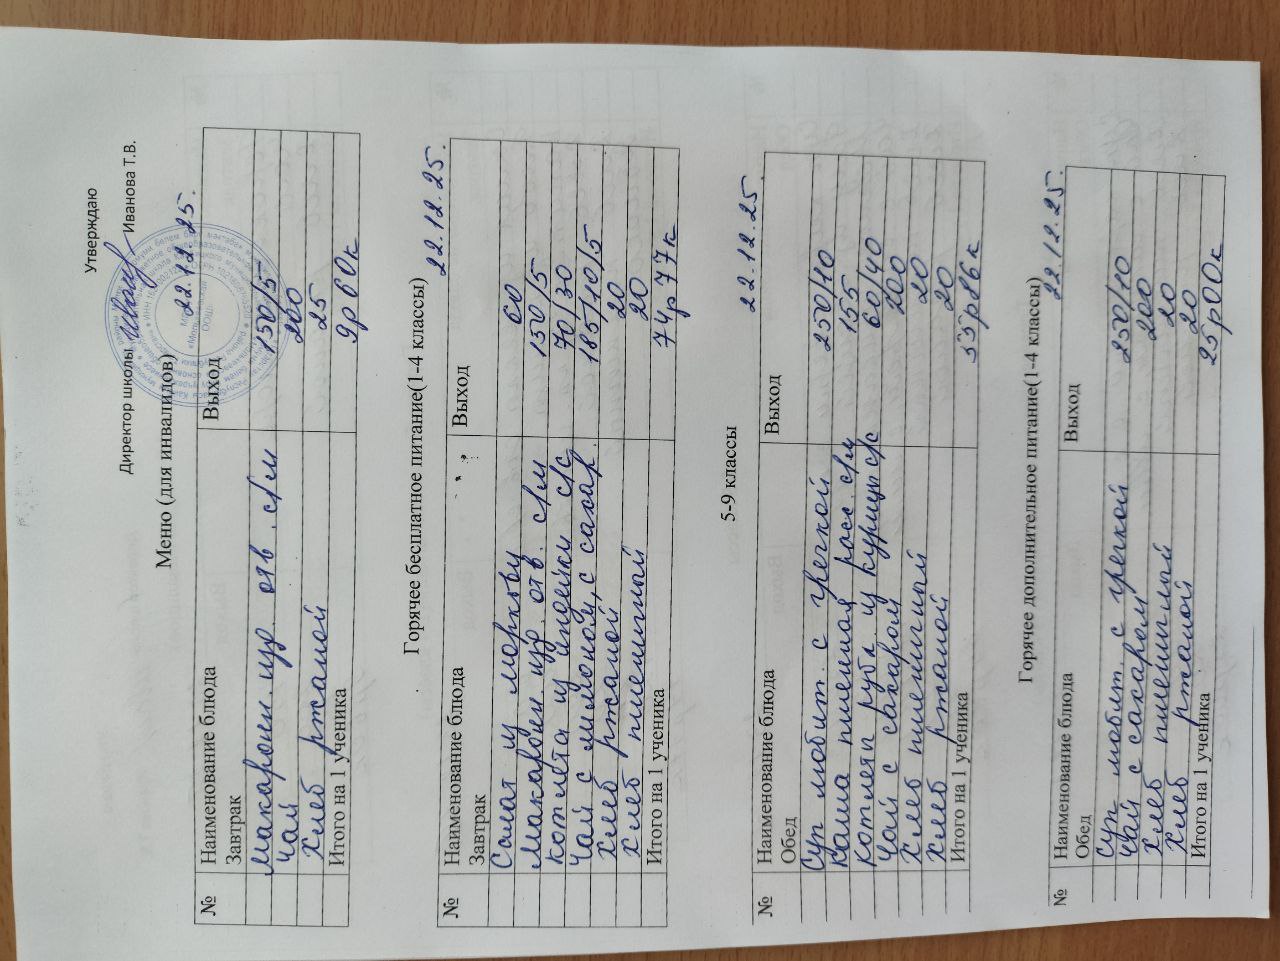 Утверждаю
Директор школы Иванова Т.В.
22.12.25.
Меню (для инвалидов)
№ Наименование блюда Выход
Завтрак
макарон. изд. отв. с/м 150/5
чай 200
хлеб ржаной 25
Итого на 1 ученика 9р60к
Горячее бесплатное питание(1-4 классы)
22.12.25.
№ Наименование блюда Выход
Завтрак
Салат из моркови 60
макарон изд. отв. с/м 150/5
котлета из индейки с/с 70/30
чай с лимоном, с сахар. 185/10/5
хлеб ржаной 20
хлеб пшеничный 20
Итого на 1 ученика 74р 77к
5-9 классы
22.12.25
№ Наименование блюда Выход
Обед
суп любит. с гречкой 250/10
каша пшенная расс. с/м 155
котлеты руба из курицы с/с 60/40
чай с сахаром 200
хлеб пшеничный 20
хлеб ржаной 20
Итого на 1 ученика 55р86к
Горячее дополнительное питание(1-4 классы)
22.12.25.
№ Наименование блюда Выход
Обед
суп любит. с гречкой 250/10
чай с сахаром 200
хлеб пшеничный 20
хлеб ржаной 20
Итого на 1 ученика 25р00к